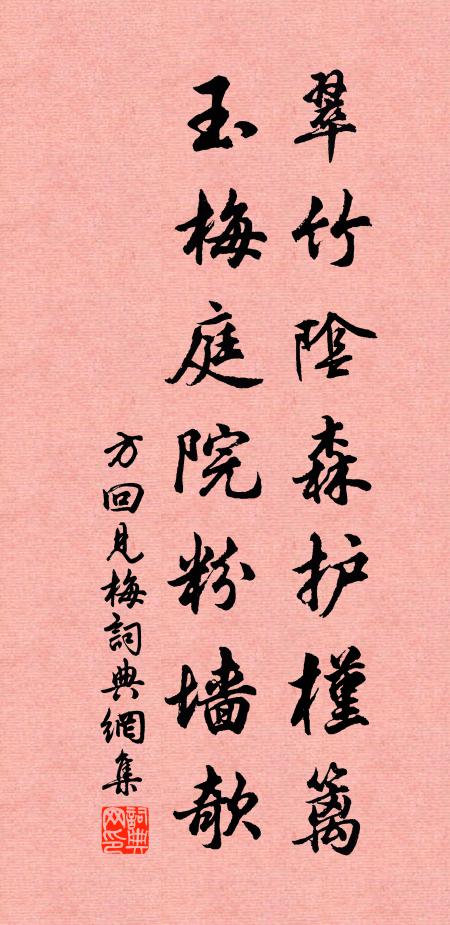 翠竹陰森护槿篱
玉梅庭院粉墙欹
方回見梅詞典網集
詞典网印